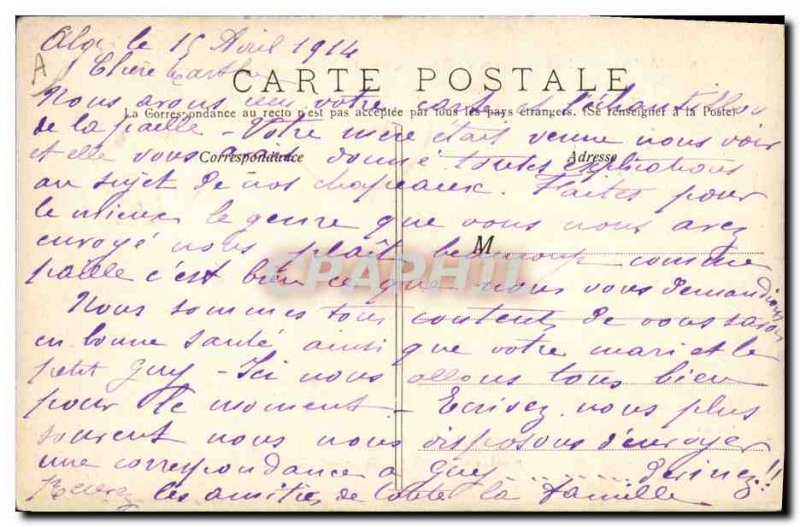 le 15 Avril 1914
A
Chère Marthe
CARTE POSTALE
Nous avons reçu votre carte et l'échantillon
La Correspondance au recto n'est pas acceptée par tous les pays étrangers. (Se renseigner à la Poste)
de la paille - Votre mère était venue nous voir
Correspondance
Adresse
et elle vous a donné toutes explications
au sujet de nos chapeaux. Faites pour
le mieux le genre que vous nous avez
M
envoyé nous plaît beaucoup comme
CPAPHIL
paille c'est bien ce que nous vous demandions
Nous sommes tous contents de vous savoir
en bonne santé ainsi que votre mari et le
petit Guy - Ici nous allons tous bien
pour le moment - Ecrivez nous plus
souvent nous nous disposons d'envoyer
une correspondance à Guy devinez!!
Recevez les amitiés de toute la famille